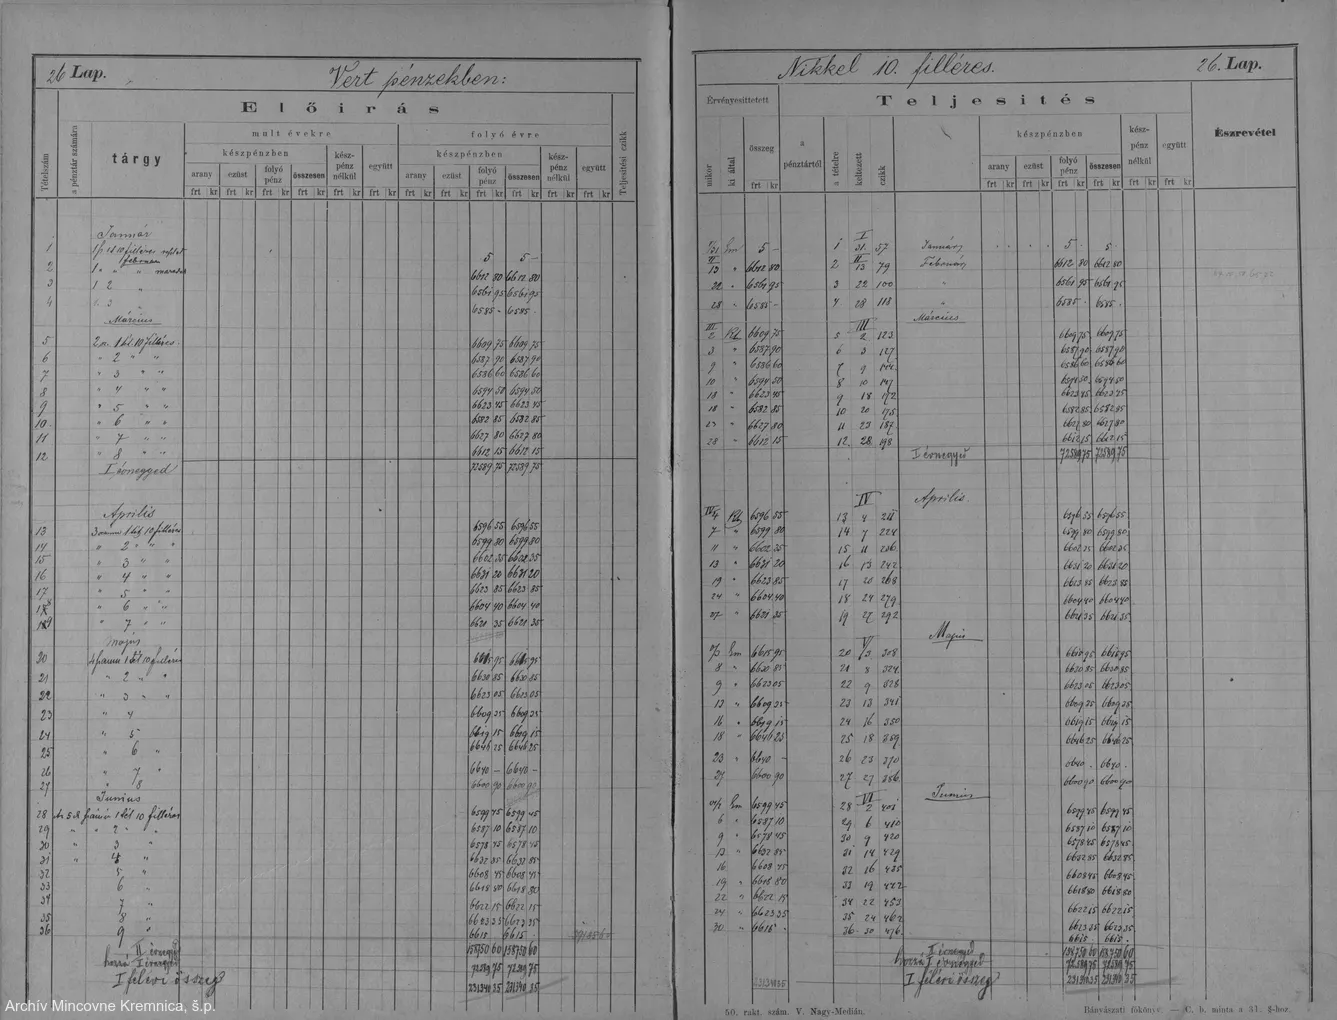 26 Lap.
Vert pénzekben:
Előirás
Tételszám
a pénztár számára
tárgy
mult évekre
folyó évre
Teljesitési czikk
készpénzben
kész-pénz nélkül
együtt
készpénzben
kész-pénz nélkül
együtt
arany
ezüst
folyó pénz
összesen
arany
ezüst
folyó pénz
összesen
frt kr frt kr frt kr frt kr frt kr frt kr frt kr frt kr frt kr frt kr frt kr frt kr
Január
1 5 5 —
Február
2 6612 80 6612 80
3 1 2 " 6561 95 6561 95
4 1 3 6585 - 6585 -
Március
5 1 tét. 10 filléres 6609 75 6609 75
6 " 2 " " 6587 90 6587 90
7 " 3 " " 6586 60 6586 60
8 " 4 " " 6594 50 6594 50
9 " 5 " " 6623 45 6623 45
10 " 6 " " 6582 85 6582 85
11 " 7 " " 6627 80 6627 80
12 " 8 " 6612 15 6612 15
I évnegyed 72589 75 72589 75
Április
13 1 tét 10 filléres 6596 55 6596 55
14 " 2 " " 6599 80 6599 80
15 " 3 " 6602 35 6602 35
16 " 4 " " 6631 20 6631 20
17 " 5 " 6623 85 6623 85
18 " 6 " " 6604 40 6604 40
19 " 7 " 6621 35 6621 35
Május
20 1 tét 10 filléres 6615 95 6615 95
21 " 2 " " 6630 85 6630 85
22 " 3 " " 6623 05 6623 05
23 " 4 6609 35 6609 35
24 " 5 6619 15 6619 15
25 " 6 " 6646 25 6646 25
26 " 7 " 6640 — 6640 —
27 " 8 6600 90 6600 90
Junius
28 1 tét 10 filléres 6599 45 6599 45
29 " " 2 " 6587 10 6587 10
30 " 3 " 6578 45 6578 45
31 " 4 " 6632 85 6632 85
32 5 " 6608 45 6608 45
33 6 " 6618 80 6618 80
34 7 " 6622 15 6622 15
35 8 " 6623 35 6623 35
36 9 " 6615 . 6615 .
II évnegyed 158750 60 158750 60
hozzá I évnegyed 72589 75 72589 75
I félévi összeg 231340 35 231340 35
Nikkel 10. filléres.
26. Lap.
Érvényesittetett
Teljesités
Észrevétel
mikor
ki által
összeg
a pénztártól
a tételre
keltezett
czikk
készpénzben
kész-pénz nélkül
együtt
arany
ezüst
folyó pénz
összesen
frt kr frt kr frt kr frt kr frt kr frt kr frt kr
I
5 — 1 31 57 Január 5 . 5 .
II
13 " 6612 80 2 13 79 Február 6612 80 6612 80
22 " 6561 95 3 22 100 " 6561 95 6561 95
28 " 6585 — 4 28 118 " 6585 . 6585 .
Március
III
2 6609 75 5 2 123 6609 75 6609 75
3 " 6587 90 6 3 127 6587 90 6587 90
9 " 6586 60 7 9 6586 60 6586 60
10 " 6594 50 8 10 147 6594 50 6594 50
18 " 6623 45 9 18 172 6623 45 6623 45
6582 85 10 20 175 6582 85 6582 85
23 " 6627 80 11 23 187 6627 80 6627 80
28 " 6612 15 12 28 198 6612 15 6612 15
I évnegyed 72589 75 72589 75
Április.
IV
6596 55 13 4 211 6596 55 6596 55
7 " 6599 80 14 7 224 6599 80 6599 80
11 " 6602 35 15 11 236 6602 35 6602 35
13 " 6631 20 16 13 242 6631 20 6631 20
19 " 6623 85 17 20 268 6623 85 6623 85
24 " 6604 40 18 24 279 6604 40 6604 40
27 " 6621 35 19 27 292 6621 35 6621 35
Május
V
6615 95 20 3 308 6615 95 6615 95
8 " 6630 85 21 8 324 6630 85 6630 85
9 " 6623 05 22 9 328 6623 05 6623 05
13 " 6609 35 23 13 341 6609 35 6609 35
16 " 6619 15 24 16 350 6619 15 6619 15
18 " 6646 25 25 18 359 6646 25 6646 25
23 " 6640 — 26 23 370 6640 . 6640 .
27 6600 90 27 27 386 6600 90 6600 90
Junius
VI
6599 45 28 2 401 6599 45 6599 45
6 " 6587 10 29 6 410 6587 10 6587 10
9 " 6578 45 30 9 420 6578 45 6578 45
13 " 6632 85 31 14 429 6632 85 6632 85
16 6608 45 32 16 435 6608 45 6608 45
19 " 6618 80 33 19 442 6618 80 6618 80
22 " 6622 15 34 22 453 6622 15 6622 15
24 " 6623 35 35 24 462 6623 35 6623 35
30 " 6615 - 36 30 476 6615 . 6615 .
II évnegyed 158750 60 158750 60
hozzá I évnegyed 72589 75 72589 75
I félévi összeg 231340 35 231340 35
50. rakt. szám. V. Nagy-Medián.
Bányászati főkönyv. — C. b. minta a 31. §-hoz.
Archív Mincovne Kremnica, š.p.